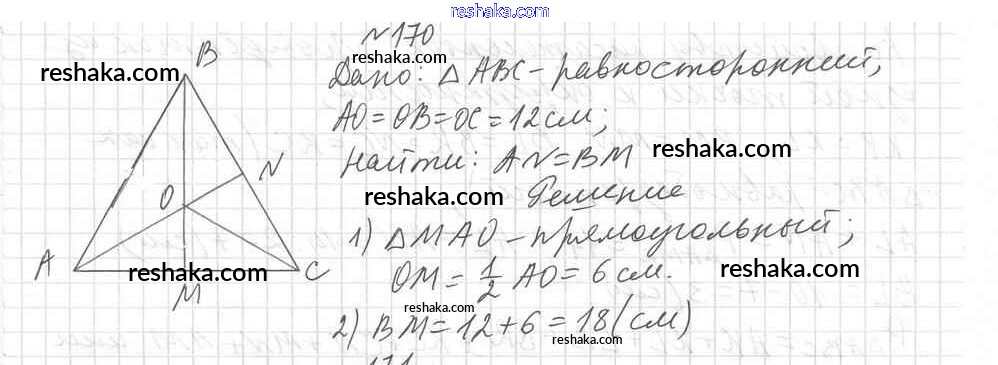 reshaka.com
№170
reshaka.com
B
reshaka.com
Дано: △ ABC - равносторонний,
reshaka.com
AO = OB = OC = 12 см;
Найти: AN = BM
reshaka.com
N
reshaka.com
Решение
O
1) △MAO - прямоугольный;
A
reshaka.com
C
OM = 1/2 AO = 6 см.
reshaka.com
M
reshaka.com
2) BM = 12 + 6 = 18 (см)
reshaka.com
171